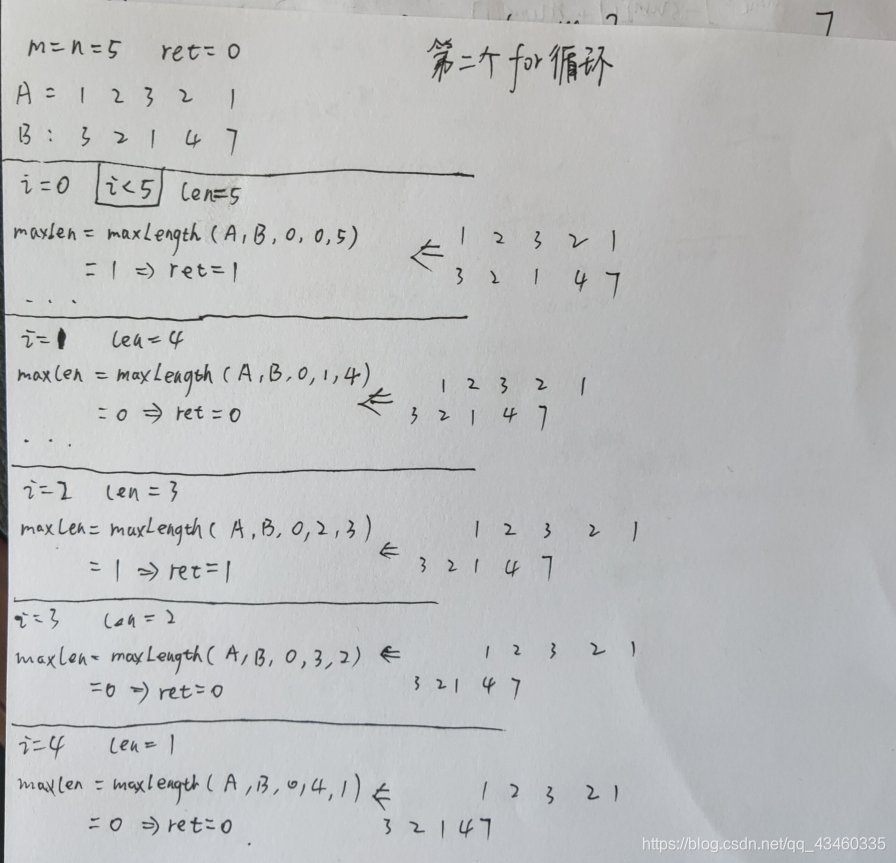 7
m=n=5 ret=0
第二个for循环
A = 1 2 3 2 1
B : 3 2 1 4 7
i=0 i<5 len=5
maxlen = maxLength (A,B,0,0,5) ⇐ 1 2 3 2 1
= 1 ⇒ ret=1 3 2 1 4 7
...
i=1 len=4
maxlen = maxLength (A,B,0,1,4) ⇐ 1 2 3 2 1
= 0 ⇒ ret=0 3 2 1 4 7
...
i=2 len=3
maxlen= maxLength( A,B,0,2,3) ⇐ 1 2 3 2 1
= 1 ⇒ ret=1 3 2 1 4 7
i=3 len=2
maxlen= maxLength( A,B,0,3,2) ⇐ 1 2 3 2 1
=0 ⇒ ret=0 3 2 1 4 7
i=4 len=1
maxlen = maxLength(A,B,0,4,1) ⇐ 1 2 3 2 1
= 0 ⇒ ret=0 3 2 1 4 7
https://blog.csdn.net/qq_43460335